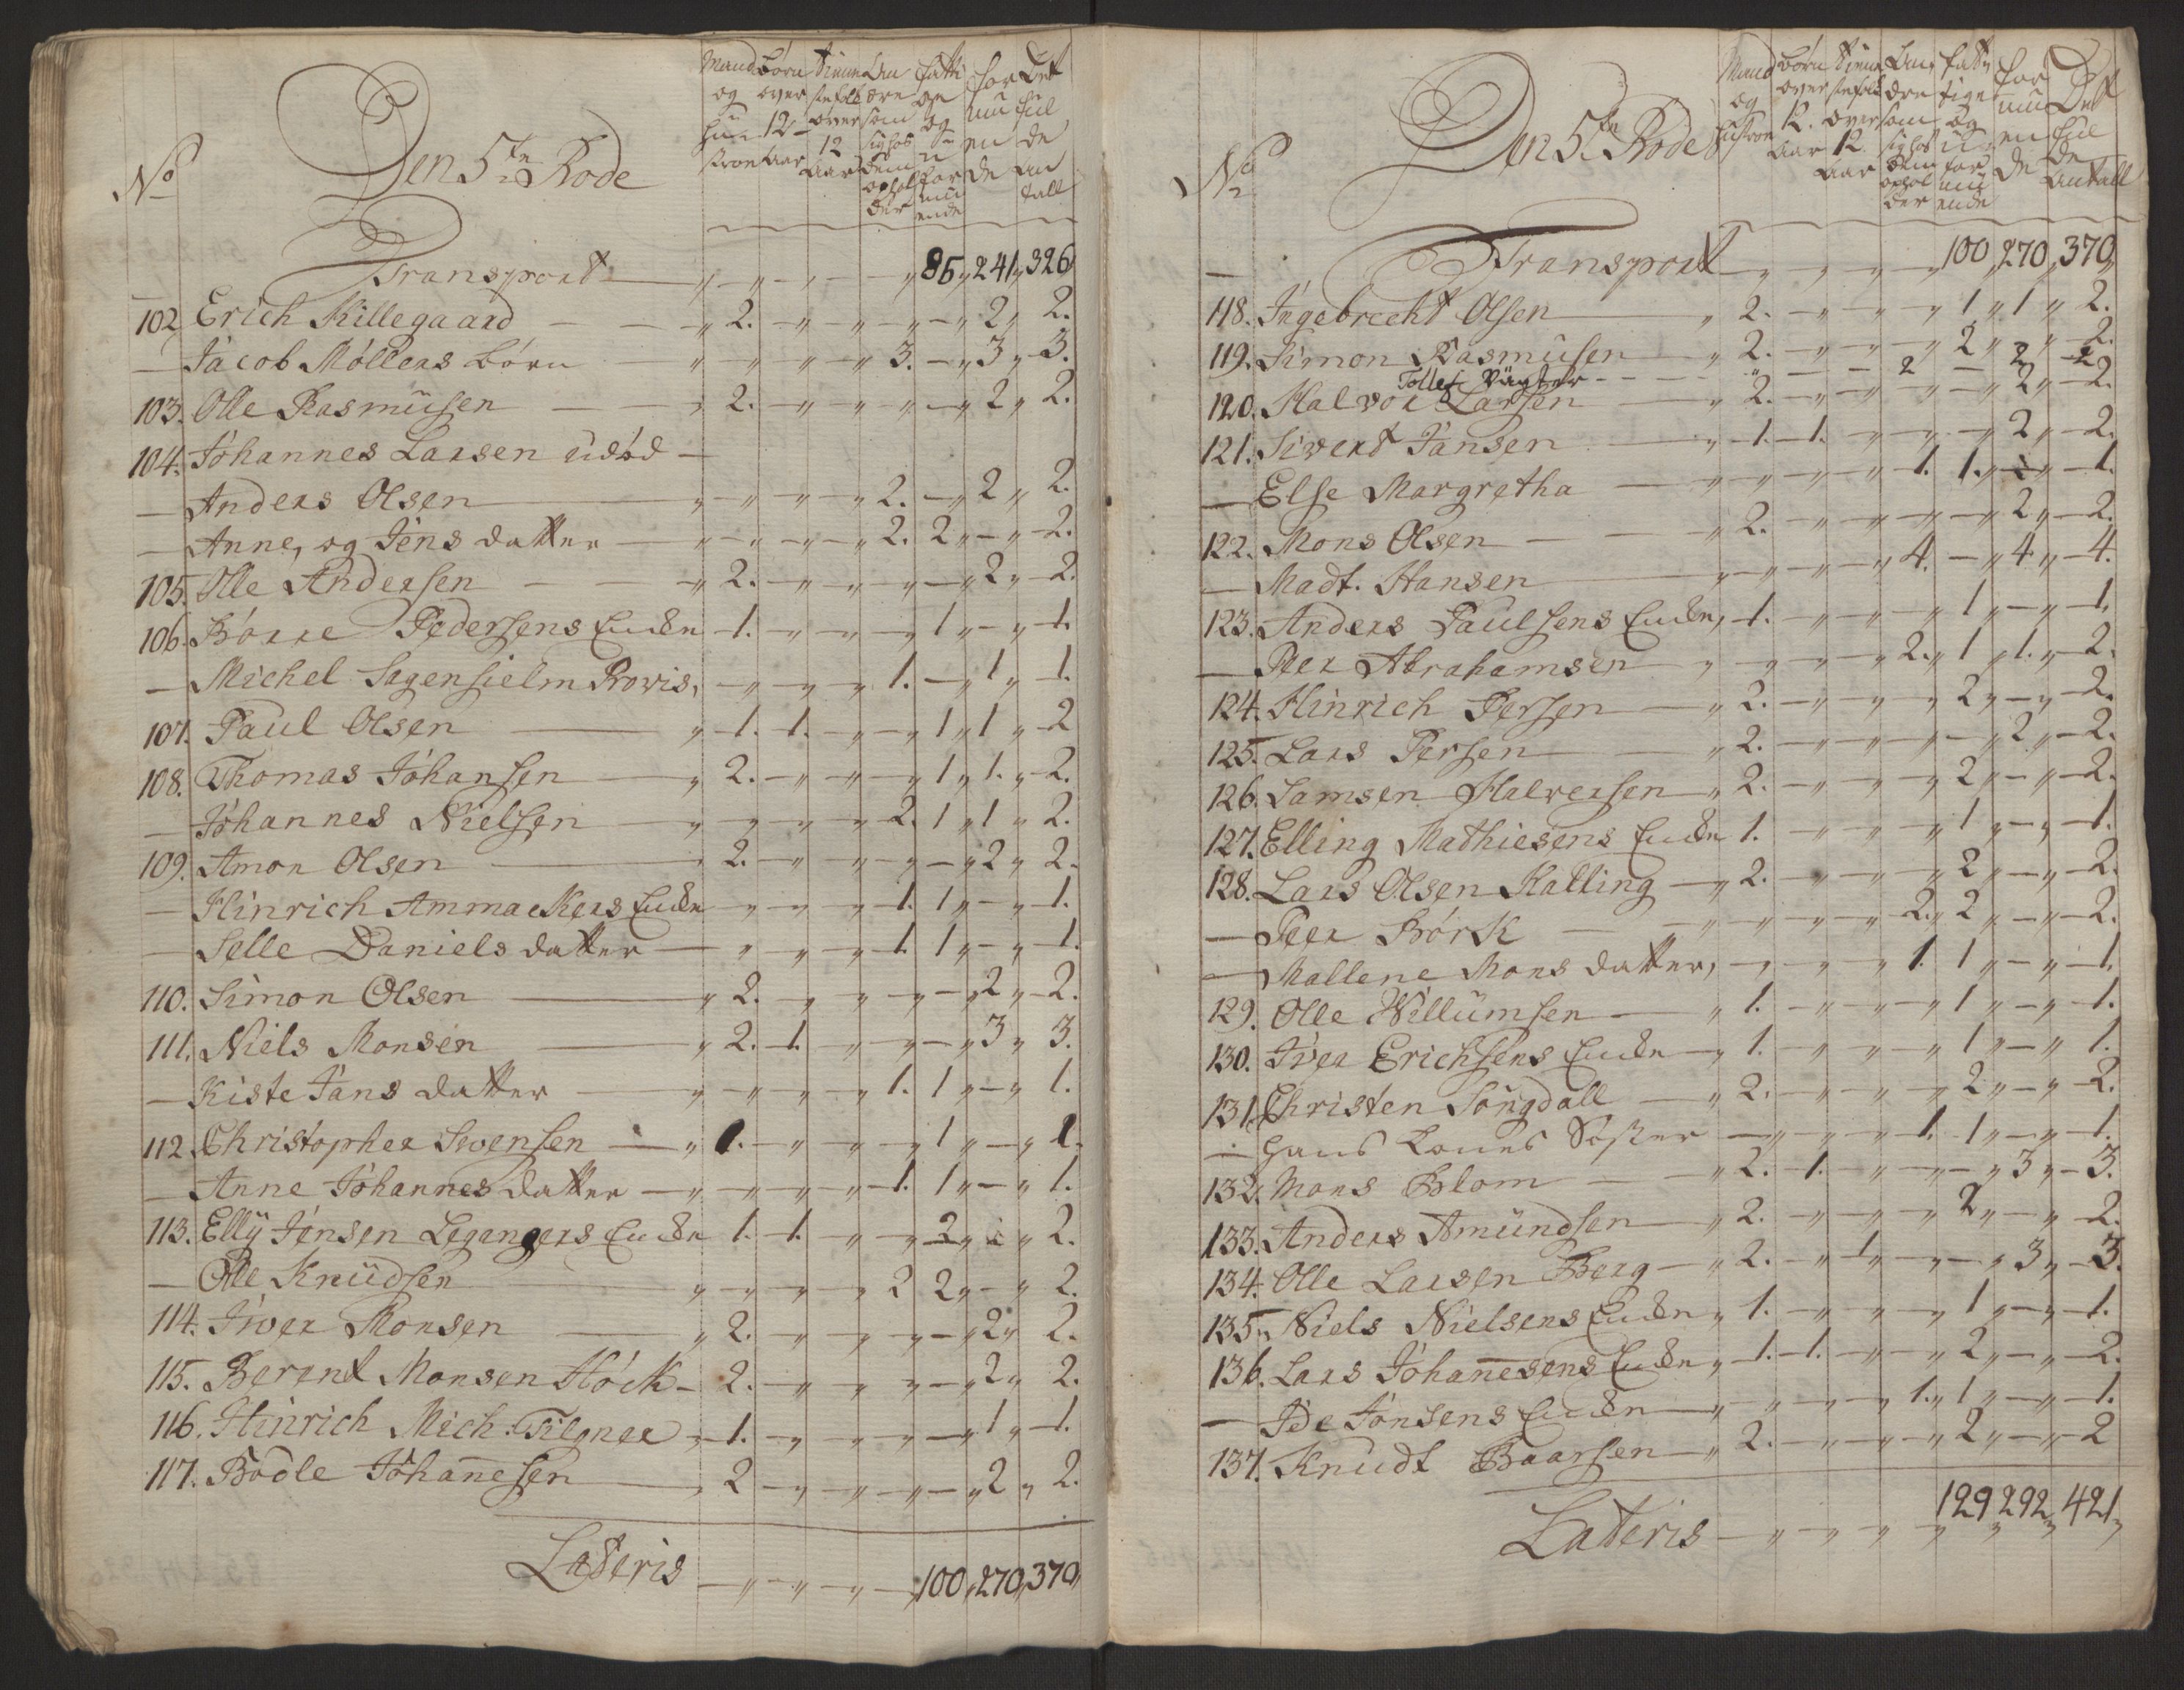 No
Den 5te Rode
Mand og Hustroe
børn over 12 aar
tienestefolk over 12 aar
Andre som sig hos dem opholder
fattige og uformuende
formuende
Det fulde antall
Transport — 85 „ 241 „ 326
102 Erich Killegaard — 2. — 2 „ 2.
— Jacob Møllers børn — 3. — 3 „ 3.
103. Olle Rasmusen — 2. — 2 „ 2.
104. Johannes Larsen udød —
— Anders Olsen — 2. — 2 „ 2.
— Anne, og Jens datter — 2. 2 „ — 2.
105. Olle Andersen — 2. — 2 „ 2.
106. Børre Pedersens Encke — 1. — 1 „ — 1.
— Michel Sagensielm Provis, — 1. — 1 „ 1.
107. Paul Olsen — 1. 1. — 1 „ 1 „ 2
108. Thomas Johansen — 2. — 1 „ 1. „ 2.
— Johannes Nielsen — 2. 1 „ 1 „ 2.
109. Amon Olsen — 2. — 2 „ 2.
— Hinrich Ammackers Encke — 1. 1 „ — 1.
— Selle Daniels datter — 1. 1 „ — 1.
110. Simon Olsen — 2. — 2 „ 2.
111. Niels Monsen — 2. 1. — 3 „ 3.
— Kiste Jans datter — 1. 1 „ — 1.
112. Christopher Svensen — 1. — 1 „ — 1.
— Anne Johannes datter — 1. 1 „ — 1.
113. Elly Jensen Legangers Encke 1. 1. — 2 „ — 2.
— Olle Knudsen — 2 2 „ — 2.
114. Iver Monsen — 2. — 2 „ 2.
115. Berent Monsen Høck — 2. — 2 „ 2.
116. Hinrich Mich: Tilgner — 1. — 1 „ 1.
117. Bodle Johanesen — 2 — 2 „ 2.
Lateris — 100 „ 270 „ 370
No
Den 5te Rode
Mand og hustroe
børn over 12. aar
tienestefolk over 12. aar
Andre som sig hos dem opholder
fattige og uformuende
formuende
Det fulde antall
— Transport — 100 „ 270 „ 370
118. Ingebrecht Olsen — 2. — 1 „ 1 „ 2.
119. Simon Rasmusen — 2. — 2 „ — 2.
Tollef Vægter — 2 — 2 — 2
120. Halvor Larsen — 2. — 2 „ 2.
121. Sivert Jansen — 1. 1. — 2 „ 2.
— Else Margretha — 1. 1. — 1.
122. Mons Olsen — 2. — 2 „ 2.
— Madt. Hansen — 4. — 4 „ 4.
123. Anders Paulsens Encke, 1. — 1 „ — 1.
— Peer Abrahamsen — 2. 1 „ 1. „ 2.
124. Hinrich Persen — 2. — 2 „ — 2.
125. Lars Persen — 2. — 2 „ 2.
126. Samsen Halversen — 2. — 2 „ — 2.
127. Elling Mathiesens Encke 1. — 1 „ — 1.
128. Lars Olsen Halling — 2. — 2 „ — 2.
— Peer Børk — 2. 2 „ — 2.
— Mallene Mons datter, — 1. 1 „ — 1.
129. Olle Willumsen — 1. — 1 „ — 1.
130. Iver Erichsens Encke — 1. — 1 „ — 1.
131. Christen Songdall — 2. — 2 „ — 2.
— Hans Søster — 1. 1 „ — 1.
132. Mons Blom — 2. 1. — 3 „ 3.
133. Anders Amundsen — 2. — 2 „ — 2.
134. Olle Larsen Berg — 2. — 1 — 3 „ 3.
135. Niels Nielsens Encke 1. — 1 „ — 1.
136. Lars Johanesens Encke 1. 1. — 2 „ — 2.
— Ide Jonsens Encke — 1. 1 „ — 1.
137. Knudt Baarsen — 2. — 2 „ — 2
Lateris — 129 „ 292 „ 421